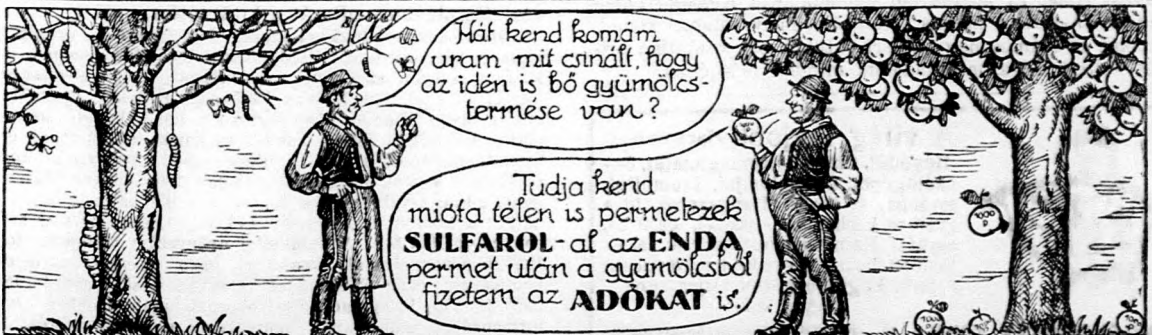 Hát kend komám
uram mit csinált, hogy
az idén is bő gyümölcs-
termése van?
Tudja kend
mióta télen is permetezek
SULFAROL-al az ENDA
permet után a gyümölcsből
fizetem az ADÓKAT is.
1000
P